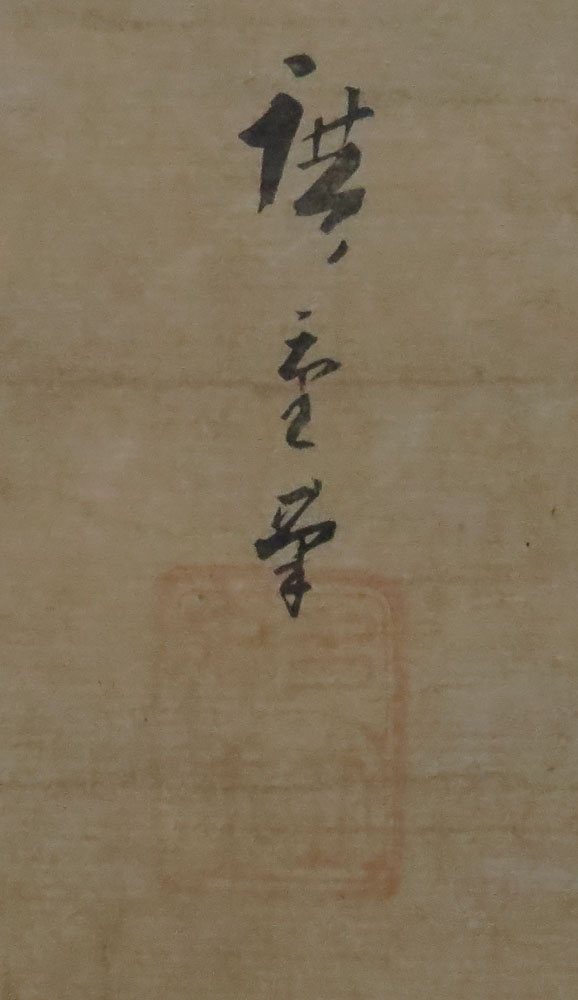 廣重筆